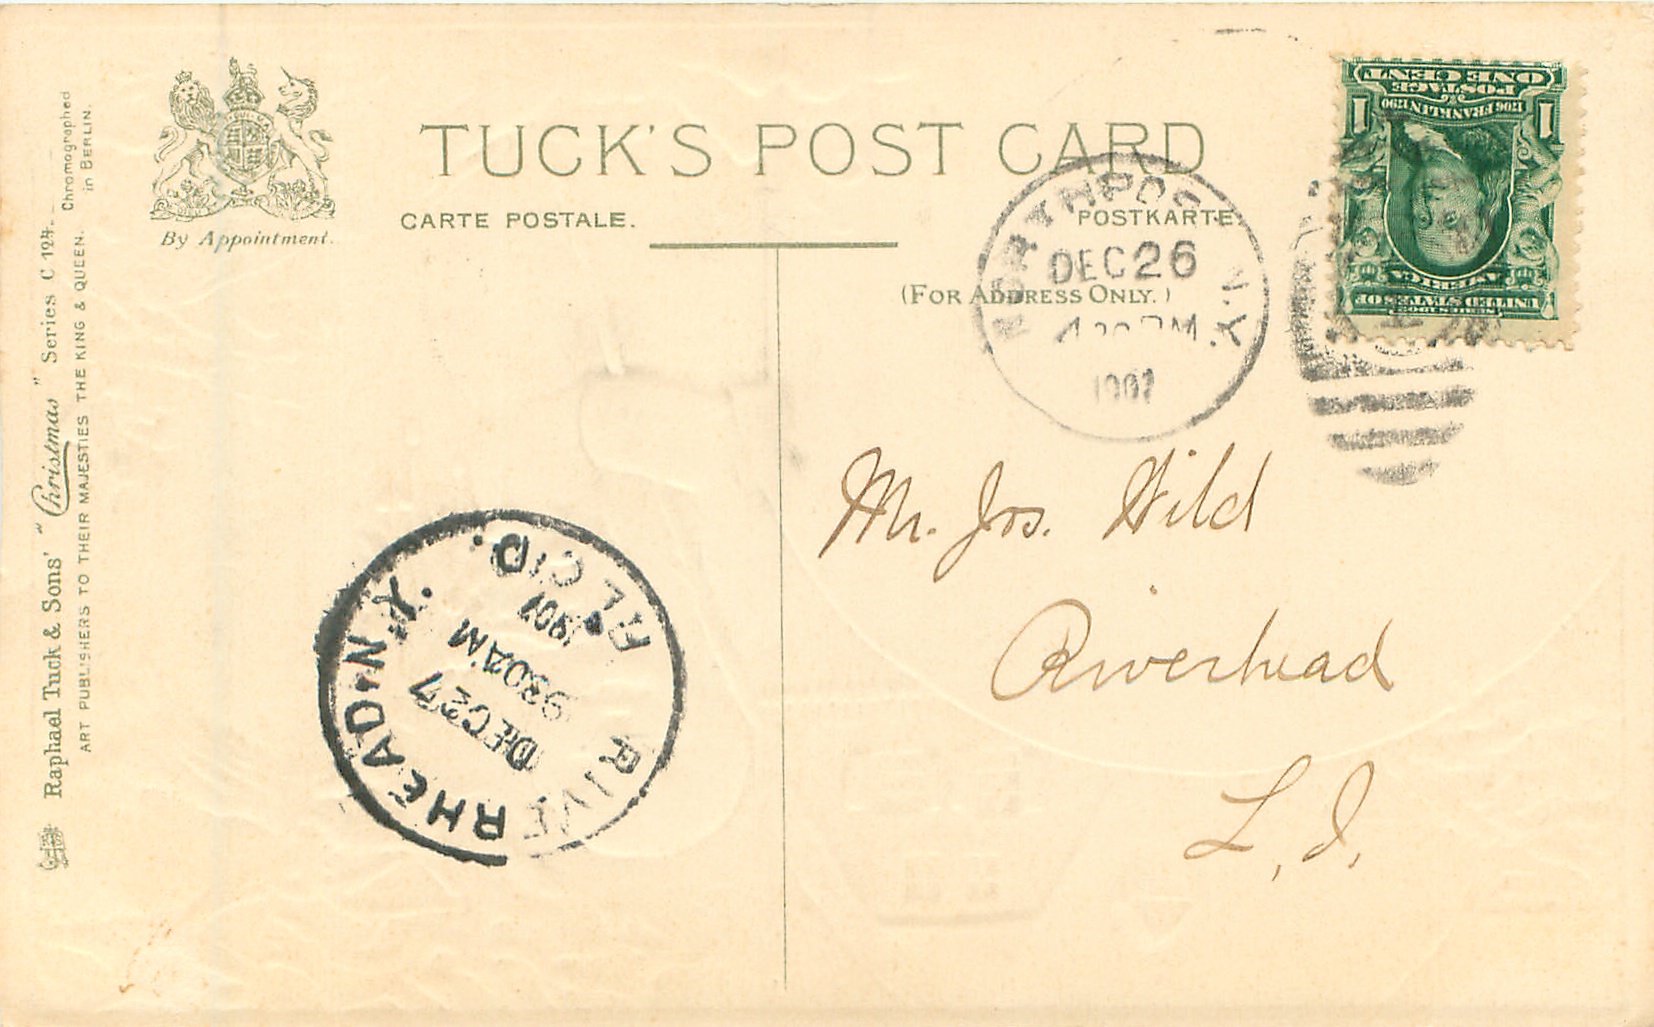 TUCK'S POST CARD
CARTE POSTALE.
POSTKARTE
(FOR ADDRESS ONLY.)
By Appointment.
Raphael Tuck & Sons' "Christmas" Series C 124.
Chromographed
in BERLIN.
ART PUBLISHERS TO THEIR MAJESTIES THE KING & QUEEN.
NORTHPO N.Y.
DEC 26
1907
ONE CENT
POSTAGE
1706 FRANKLIN 1790
1 1
SERIES 1902
UNITED STATES OF
AMERICA
Mr. Jos. Wild
Riverhead
L. I.
RIVERHEAD N.Y.
DEC 27
930AM
1907
REC'D.